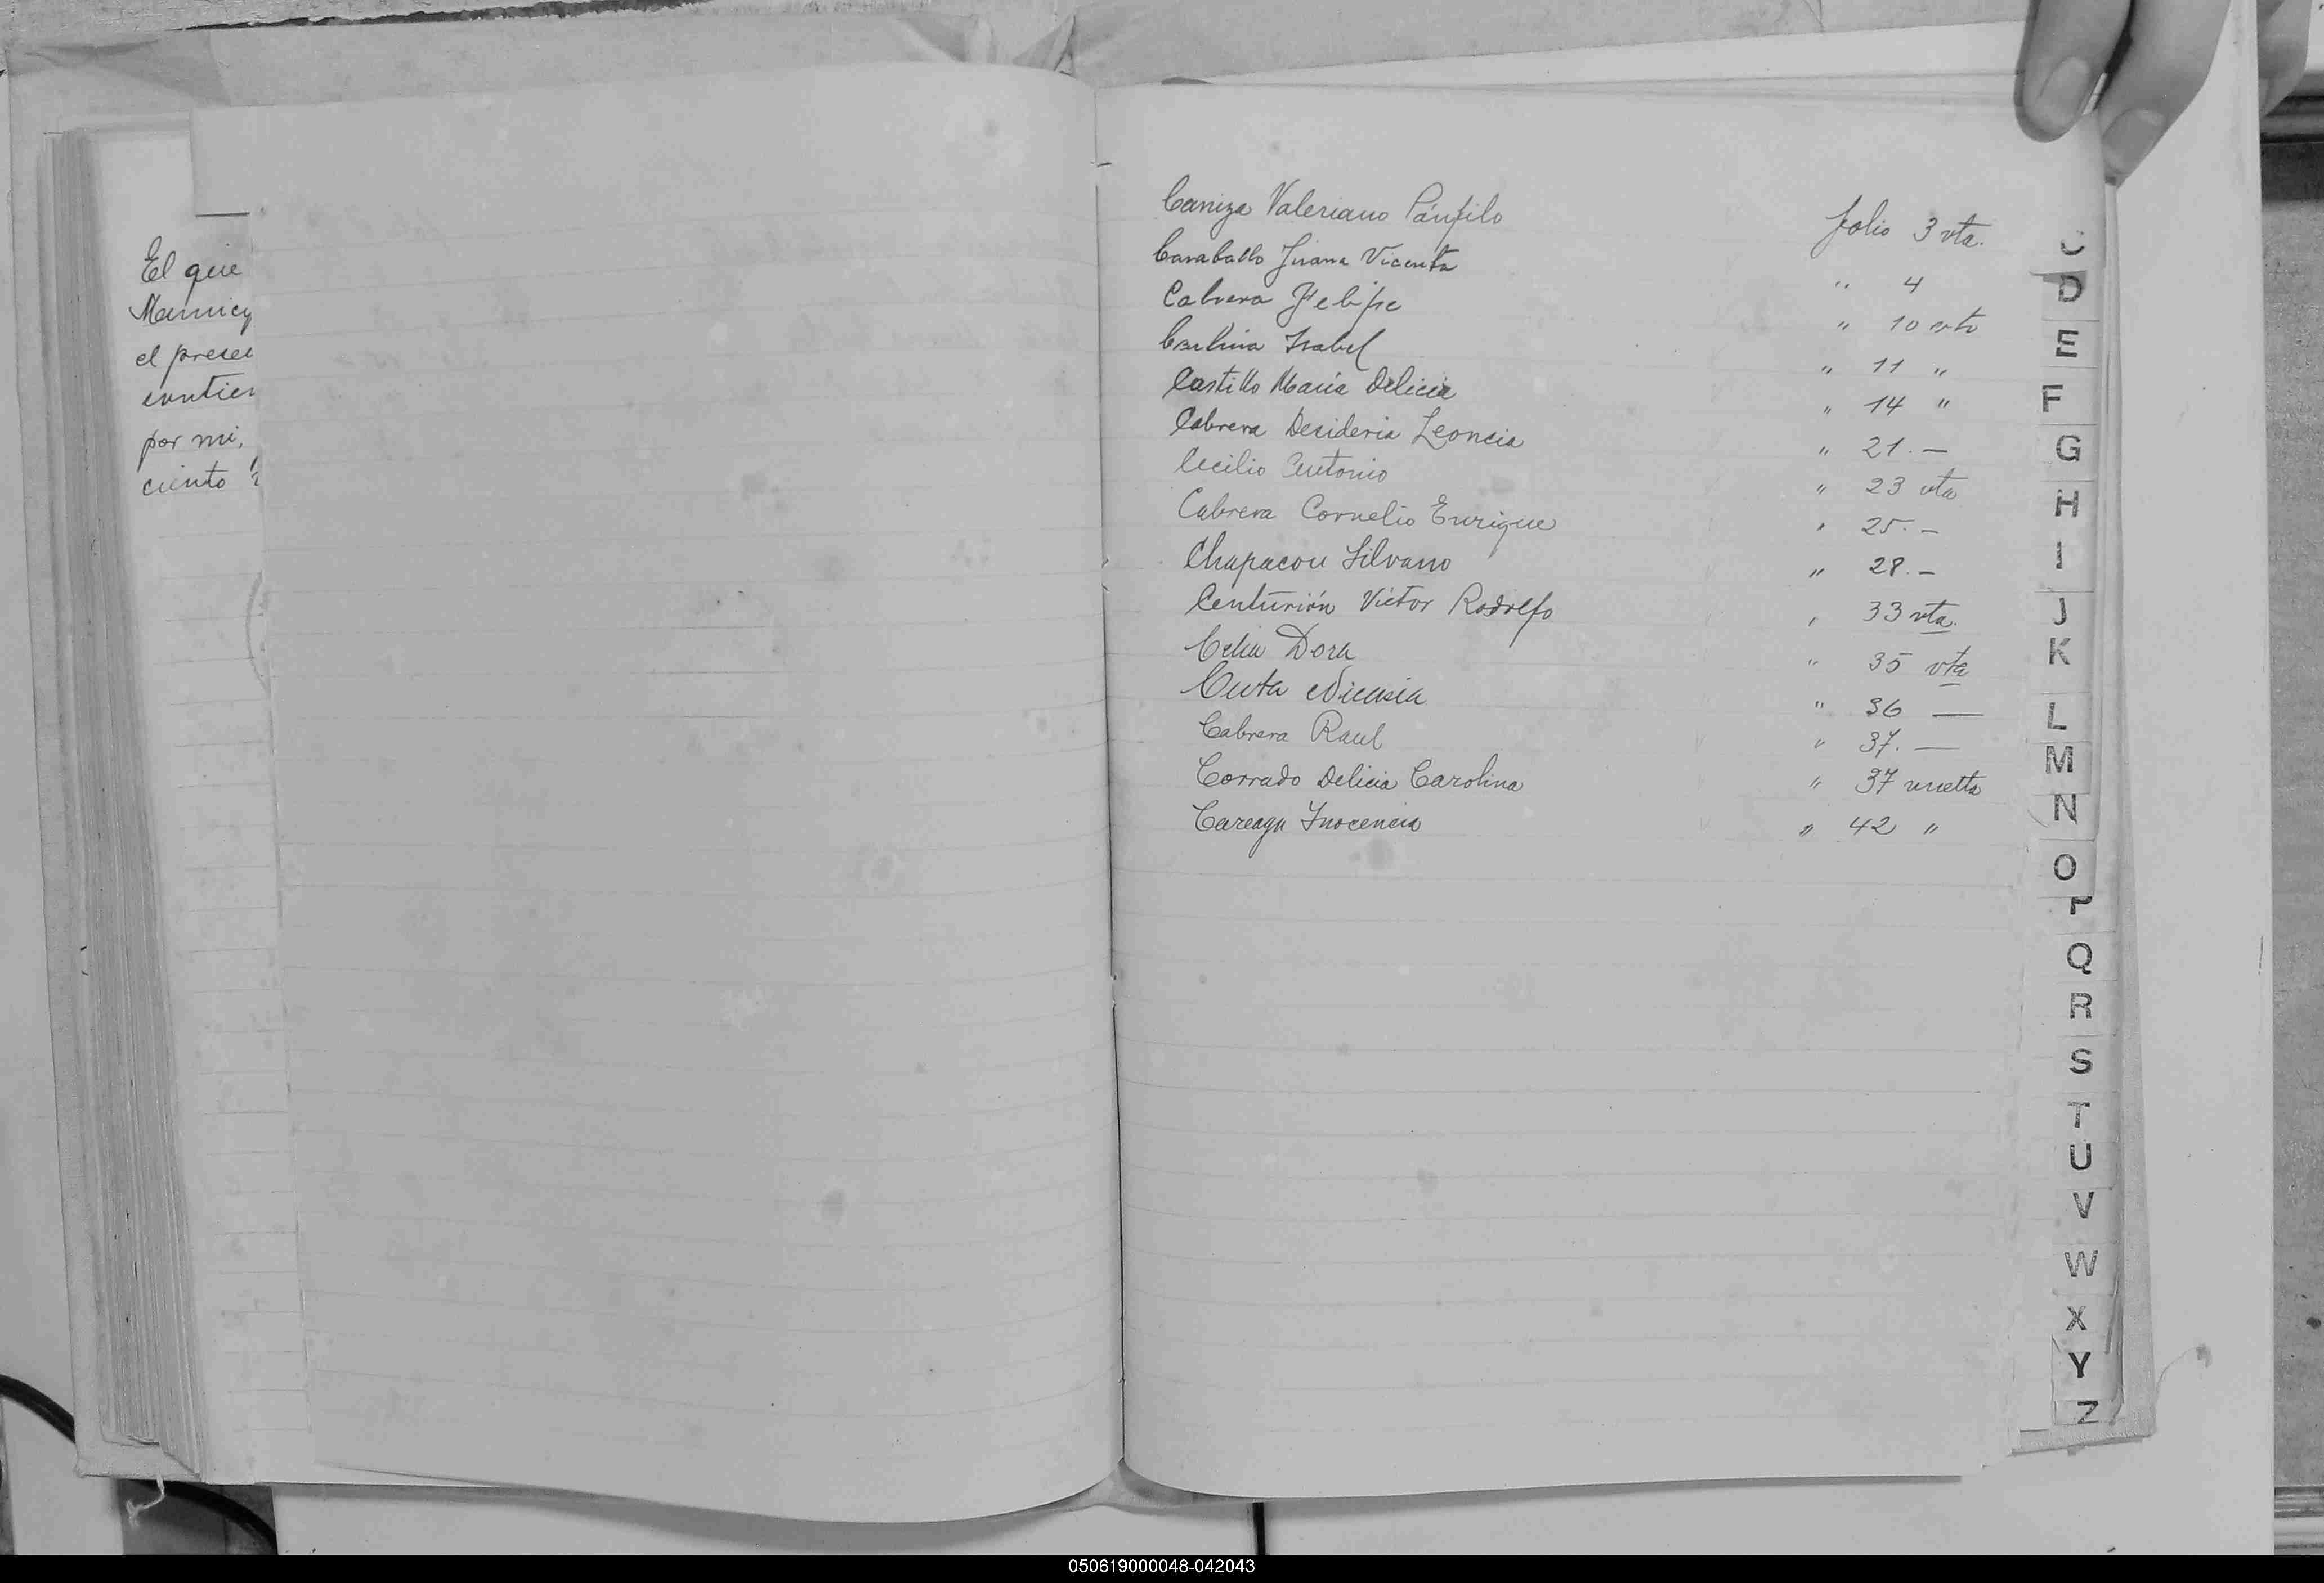 El que
el presen
contien
por mi,
ciento
Caniza Valeriano Pánfilo folio 3 vta.
Caraballo Juana Vicenta " 4
Cabrera Felipe " 10 vta
Isabel " 11 "
Castillo María Delicia " 14 "
Cabrera Desideria Leoncia " 21.—
Cecilio Antonio " 23 vta
Cabrera Cornelio Enrique " 25.—
Chapacou Silvano " 28.—
Centurión Víctor Rodolfo " 33 vta.
Celia Dora " 35 vta
Nicasia " 36 —
Cabrera Raul " 37.—
Corrado Delicia Carolina " 37 vuelta
Careaga Inocencia " 42 "
C
D
E
F
G
H
I
J
K
L
M
N
O
P
Q
R
S
T
U
V
W
X
Y
Z
050619000048-042043